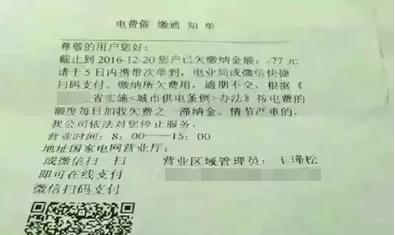 电费催 缴通 知 单
尊敬的用户您好:
截止到 2016-12-20 您户已欠缴纳金额: -77 元
请于 5 日内携带次单到, 电业局或微信快捷
扫码支付。缴纳所欠费用, 逾期不交、根据《
省实施<城市供电条例>办法》按电费的
额度每日加收欠费之一滞纳金。情节严重的,
我公司依法对您停止服务。
营业时间: 8: 00——15: 00
地址国家电网营业厅:
或微信扫一 扫 营业区域管理员:
即可在线支付
微信扫码支付